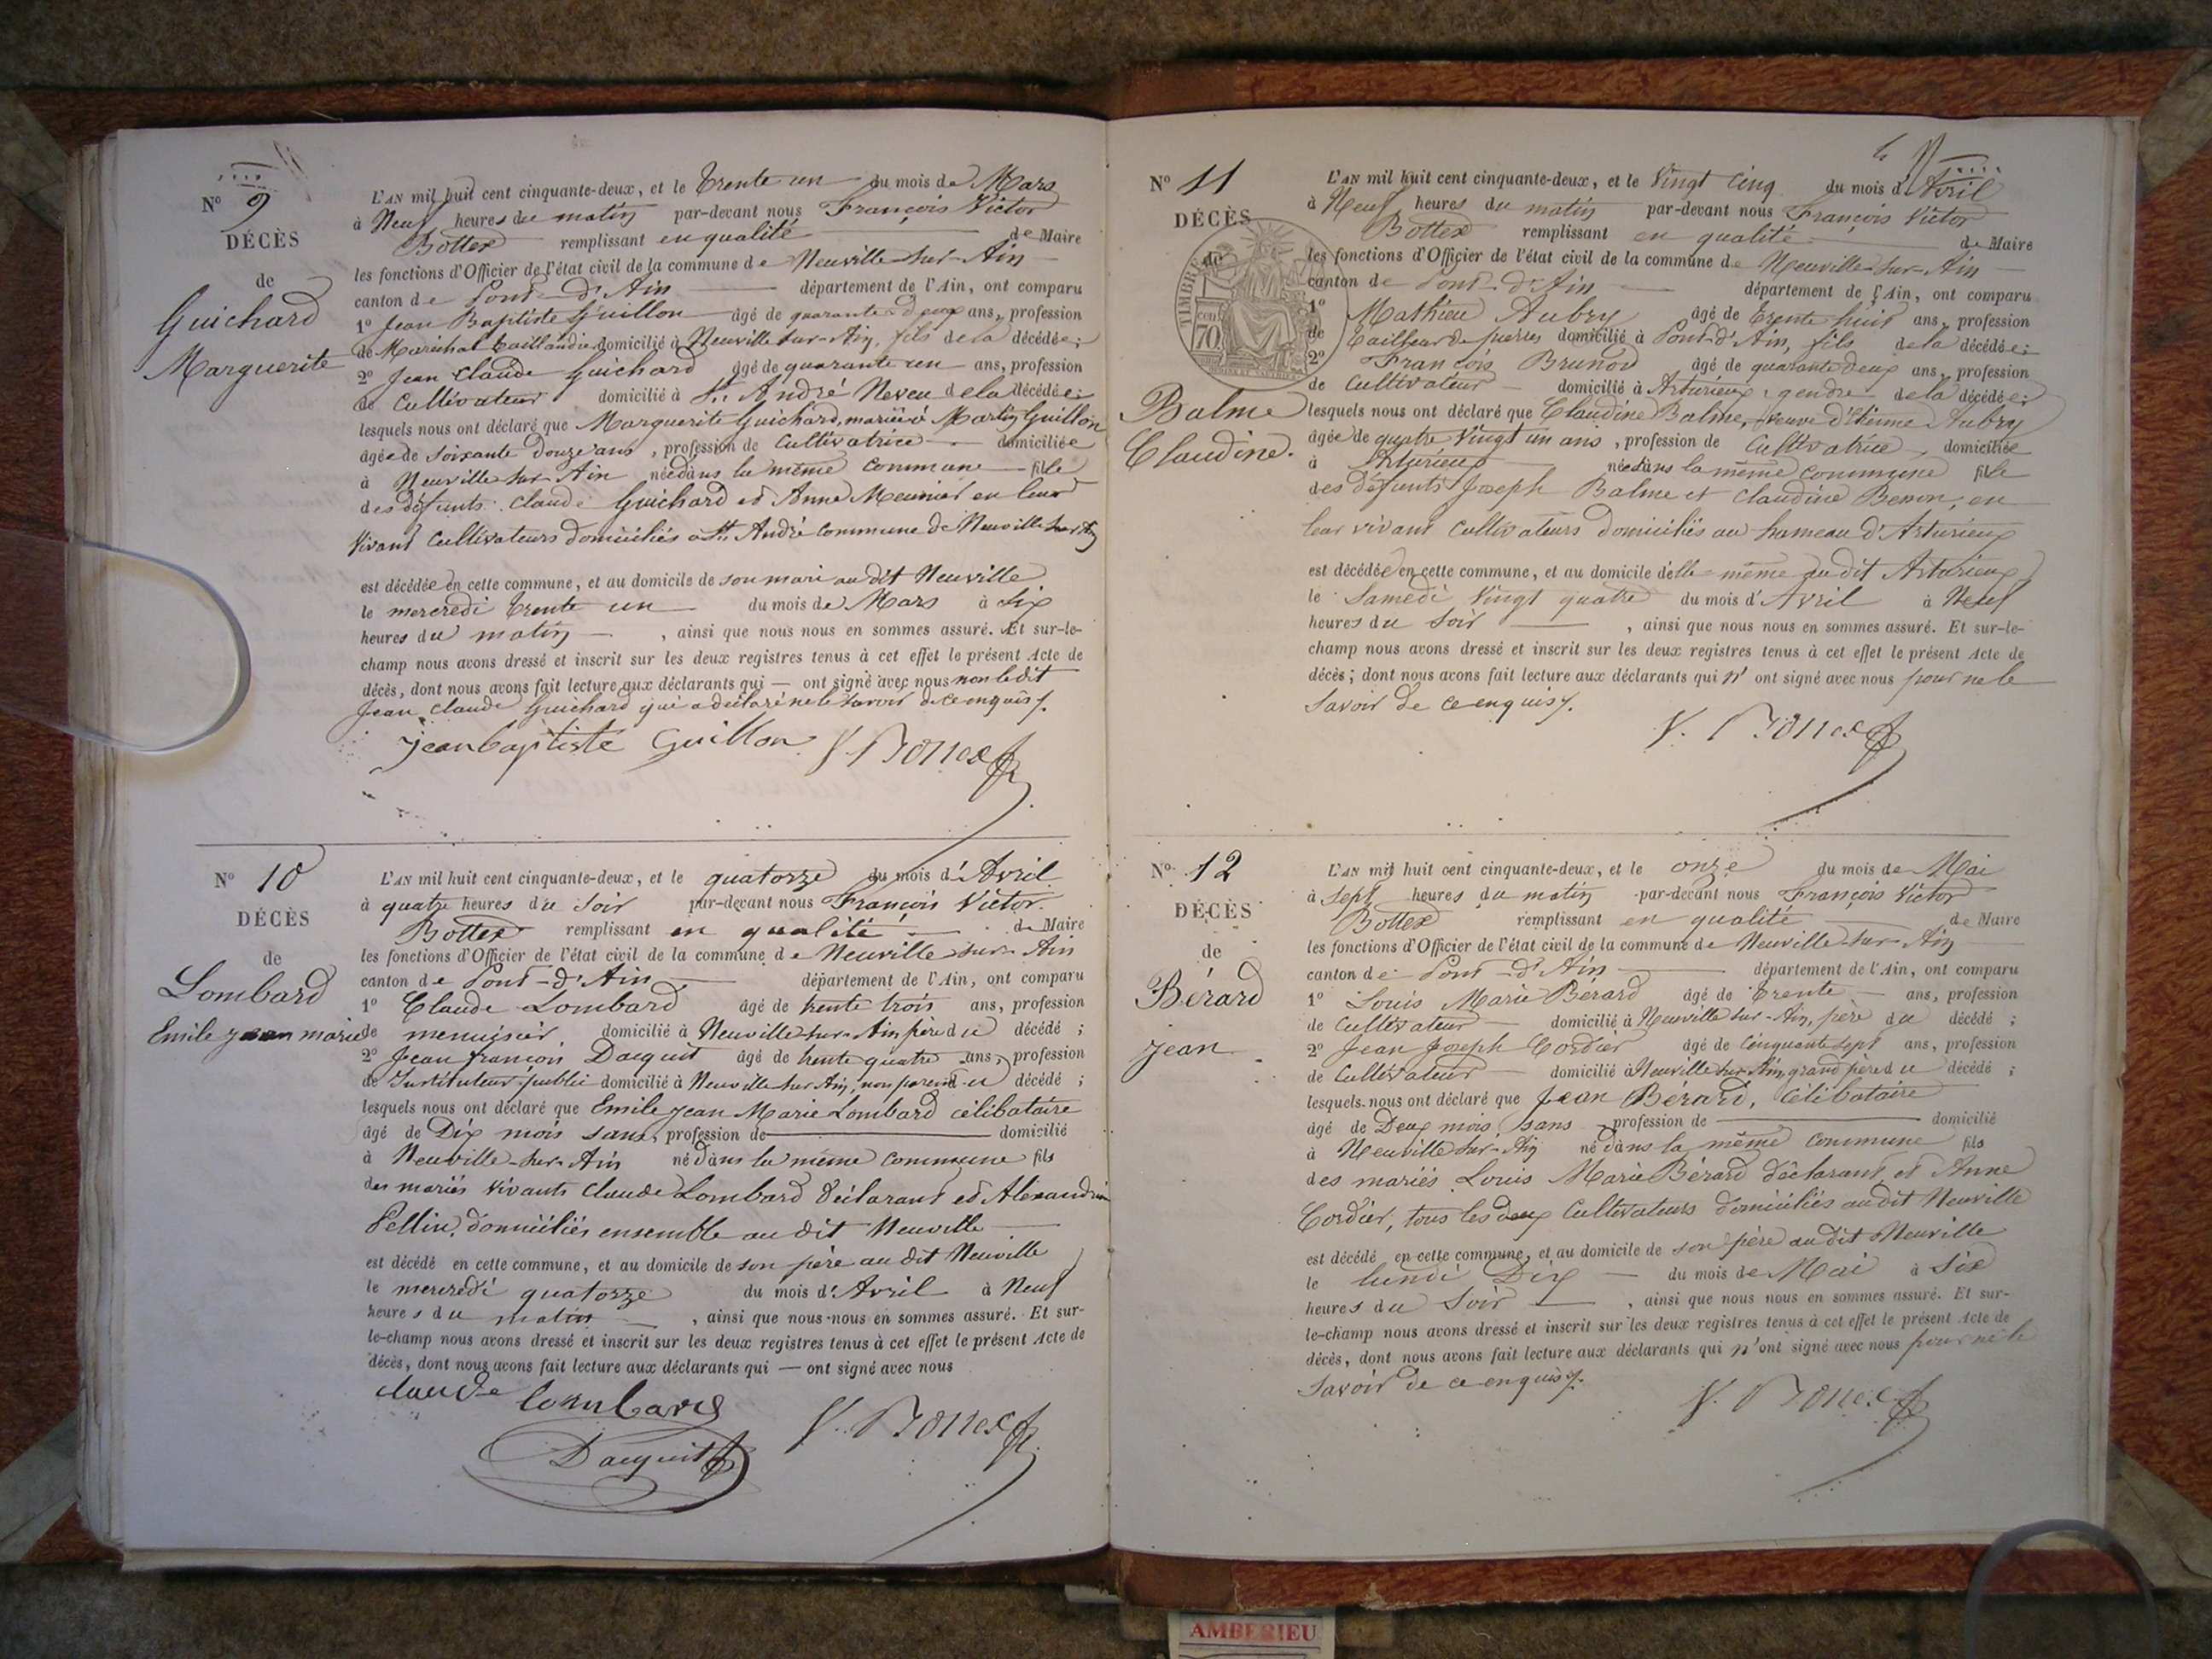 N° 9
DÉCÈS
de
Guichard
Marguerite
L'AN mil huit cent cinquante-deux, et le trente un du mois de Mars
à Neuf heures du matin par-devant nous François Victor
Bottex remplissant en qualité de Maire
les fonctions d'Officier de l'état civil de la commune de Neuville-sur-Ain
canton de Pont-d'Ain département de l'Ain, ont comparu
1° Jean Baptiste Guillon âgé de quarante deux ans, profession
de Maréchal taillandier domicilié à Neuville sur-Ain, fils de la décédée;
2° Jean Claude Guichard âgé de quarante un ans, profession
de Cultivateur domicilié à St. André Neveu de la décédée;
lesquels nous ont déclaré que Marguerite Guichard, mariée à Martin Guillon
âgée de soixante Douze ans, profession de Cultivatrice domiciliée
à Neuville sur Ain née dans la même commune fille
des défunts Claude Guichard et Anne Meunier en leur
vivant Cultivateurs domiciliés à St. André commune de Neuville sur Ain
est décédée en cette commune, et au domicile de son mari au dit Neuville
le mercredi trente un du mois de Mars à Six
heures du matin, ainsi que nous nous en sommes assuré. Et sur-le-
champ nous avons dressé et inscrit sur les deux registres tenus à cet effet le présent Acte de
décès, dont nous avons fait lecture aux déclarants qui — ont signé avec nous non le dit
Jean Claude Guichard qui a déclaré ne le savoir de ce enquis.
jean baptiste Guillon V. Bottex
N° 10
DÉCÈS
de
Lombard
Emile jean marie
L'AN mil huit cent cinquante-deux, et le quatorze du mois d'Avril
à quatre heures du soir par-devant nous François Victor
Bottex remplissant en qualité de Maire
les fonctions d'Officier de l'état civil de la commune de Neuville-sur-Ain
canton de Pont-d'Ain département de l'Ain, ont comparu
1° Claude Lombard âgé de trente trois ans, profession
de menuisier domicilié à Neuville-sur-Ain père du décédé;
2° Jean François Dacquit âgé de trente quatre ans, profession
de Instituteur public domicilié à Neuville sur Ain, non parent du décédé;
lesquels nous ont déclaré que Emile Jean Marie Lombard célibataire
âgé de Dix mois sans, profession de domicilié
à Neuville-sur-Ain né dans la même commune fils
des mariés vivants Claude Lombard déclarant et Alexandrine
Pellin, domiciliés ensemble au dit Neuville
est décédé en cette commune, et au domicile de son père au dit Neuville
le mercredi quatorze du mois d'Avril à Neuf
heures du matin, ainsi que nous nous en sommes assuré. Et sur-
le-champ nous avons dressé et inscrit sur les deux registres tenus à cet effet le présent Acte de
décès, dont nous avons fait lecture aux déclarants qui — ont signé avec nous
claude lombard
Dacquit V. Bottex
N° 11
DÉCÈS
de
Balme
Claudine.
TIMBRE
70
L'AN mil huit cent cinquante-deux, et le Vingt cinq du mois d'Avril
à Neuf heures du matin par-devant nous François Victor
Bottex remplissant en qualité de Maire
les fonctions d'Officier de l'état civil de la commune de Neuville-sur-Ain
canton de Pont-d'Ain département de l'Ain, ont comparu
1° Mathieu Aubry âgé de trente huit ans, profession
de tailleur de pierres domicilié à Pont-d'Ain, fils de la décédée;
2° François Brunod âgé de quarante deux ans, profession
de Cultivateur domicilié à Arturieux, gendre de la décédée;
lesquels nous ont déclaré que Claudine Balme, veuve d'Etienne Aubry
âgée de quatre Vingt un ans, profession de Cultivatrice, domiciliée
à Arturieux née dans la même commune fille
des défunts Joseph Balme et Claudine Benon, en
leur vivant cultivateurs domiciliés au hameau d'Arturieux
est décédée en cette commune, et au domicile d'elle même au dit Arturieux
le Samedi Vingt quatre du mois d'Avril à Neuf
heures du soir, ainsi que nous nous en sommes assuré. Et sur-le-
champ nous avons dressé et inscrit sur les deux registres tenus à cet effet le présent Acte de
décès; dont nous avons fait lecture aux déclarants qui n'ont signé avec nous pour ne le
savoir de ce enquis.
V. Bottex
N° 12
DÉCÈS
de
Bérard
jean
L'AN mil huit cent cinquante-deux, et le onze du mois de Mai
à sept heures du matin par-devant nous François Victor
Bottex remplissant en qualité de Maire
les fonctions d'Officier de l'état civil de la commune de Neuville-sur-Ain
canton de Pont-d'Ain département de l'Ain, ont comparu
1° Louis Marie Bérard âgé de trente ans, profession
de Cultivateur domicilié à Neuville sur-Ain, père du décédé;
2° Jean Joseph Cordier âgé de cinquante sept ans, profession
de Cultivateur domicilié à Neuville sur-Ain, grand père du décédé;
lesquels nous ont déclaré que Jean Bérard, célibataire
âgé de Deux mois, sans profession de domicilié
à Neuville-sur-Ain né dans la même commune fils
des mariés Louis Marie Bérard déclarant, et Anne
Cordier, tous les deux Cultivateurs domiciliés au dit Neuville
est décédé en cette commune, et au domicile de son père au dit Neuville
le lundi Dix du mois de Mai à Six
heures du Soir, ainsi que nous nous en sommes assuré. Et sur-
le-champ nous avons dressé et inscrit sur les deux registres tenus à cet effet le présent Acte de
décès, dont nous avons fait lecture aux déclarants qui n'ont signé avec nous pour ne le
savoir de ce enquis.
V. Bottex
AMBERIEU